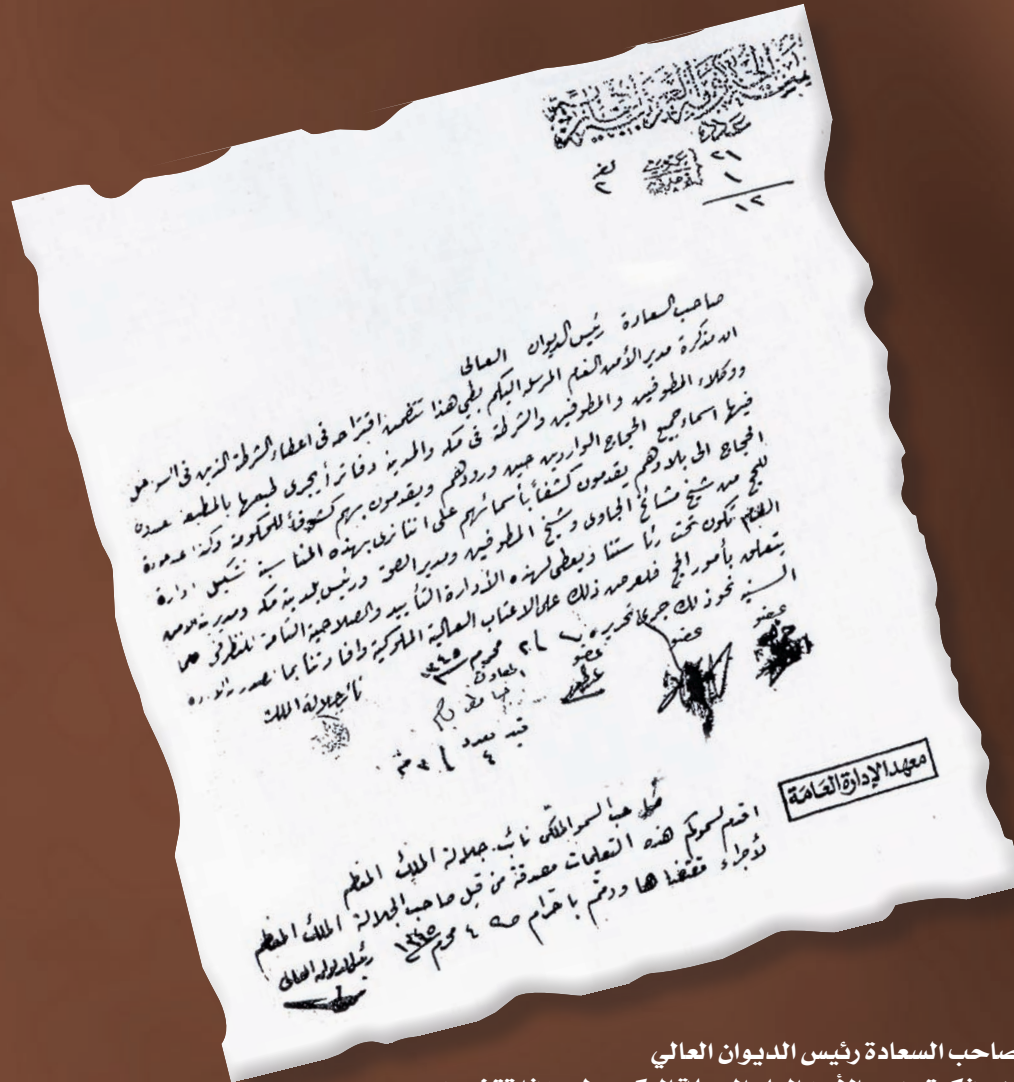 الحكومة العربية
عدد
٢١
١
١٢
٢
صاحب السعادة رئيس الديوان العالى
ان مذكرة مدير الأمن العام المرسلة اليكم بطي هذا تتضمن اقتراحه فى اعطاء الشرطة الذين فى
ووكلاء المطوفين والمطوفين والشرطة فى مكه والمدينه دفاتر أيجرى طبعها بالمطبعه
فيها اسماء جميع الحجاج الواردين حين ورودهم ويقدمون بهم كشوفاً للحكومة وكذا عند عودة
الحجاج الى بلادهم يقدمون كشفاً بأسمائهم على اننا نرى بهذه المناسبة تشكيل ادارة
للحج من شيخ مشائخ الجاوى وشيخ المطوفين ومدير الصحة ورئيس بلدية مكه ومدير الامن
العام تكون تحت رأستنا ويعطى لهذه الأدارة التأييد والصلاحية التامة للنظر فى
يتعلق بأمور الحج فلعرض ذلك على الاعتاب العالية الملوكية وافادتنا بما تصدر
السنية نحو ذلك جرى تحريره ٢ محرم ١٣٤٥
عضو
عضو
عضو
نائب جلالة الملك
قيد بعدد
٤
معهد الإدارة العامة
صاحب السمو الملكى نائب جلالة الملك المعظم
اقدم لسموكم هذه التعليمات مصدقة من قبل صاحب الجلالة الملك المعظم
لأجراء مقتضاها ودمتم باحترام ٤ محرم ١٣٤٥
رئيس الديوان العالى
صاحب السعادة رئيس الديوان العالي